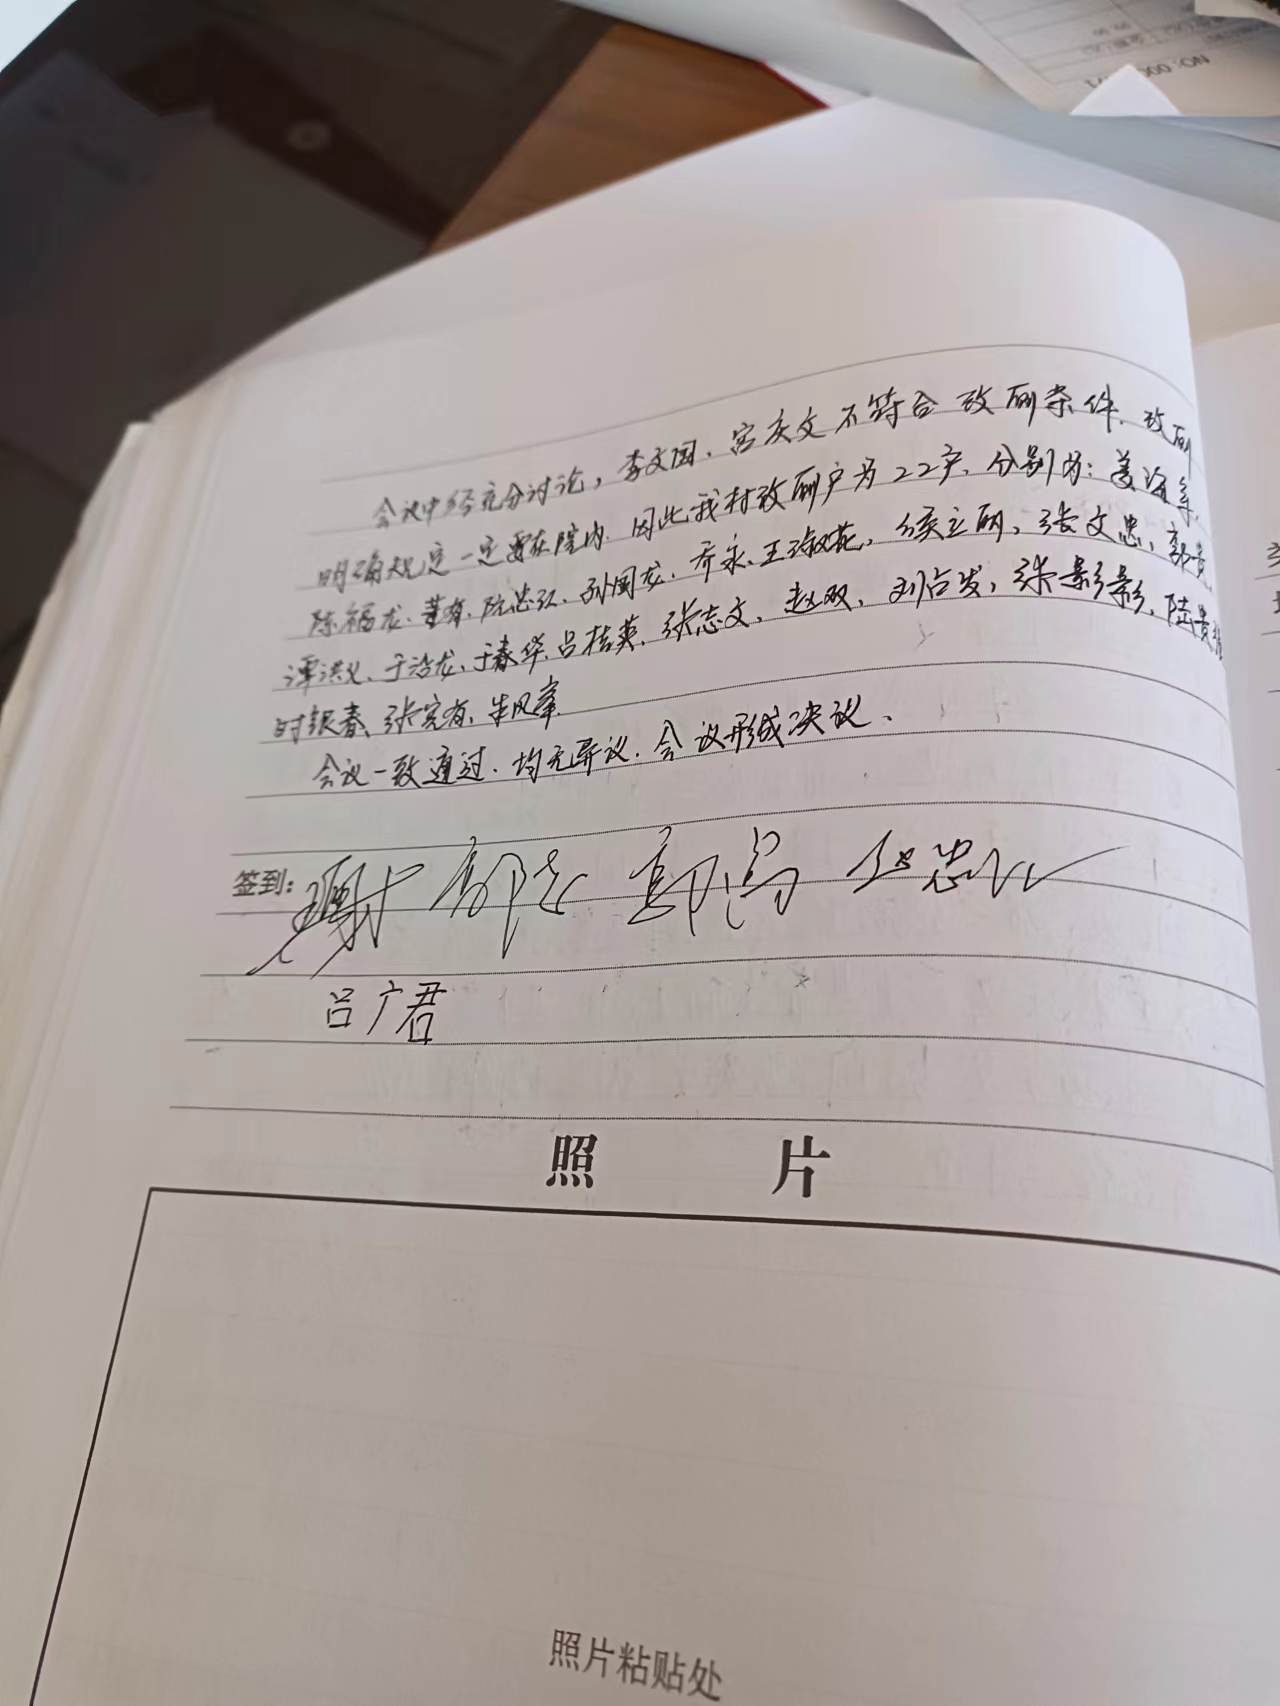 会议中经充分讨论，李文国、宫庆文不符合改厕条件．改厕
明确规定一定要在院内．因此我村改厕户为22户．分别为：姜海军、
陈福龙、董有、阮忠江、孙国龙、乔永、王淑花、侯立丽、张文忠、郭贵
谭洪义、于洁龙、于春华、吕桂英、张志文、赵双、刘占发、张影影、陆贵
时银春、张宪有、朱凤宰．
会议一致通过．均无异议．会议形成决议．
签到：
吕广君
照 片
照片粘贴处